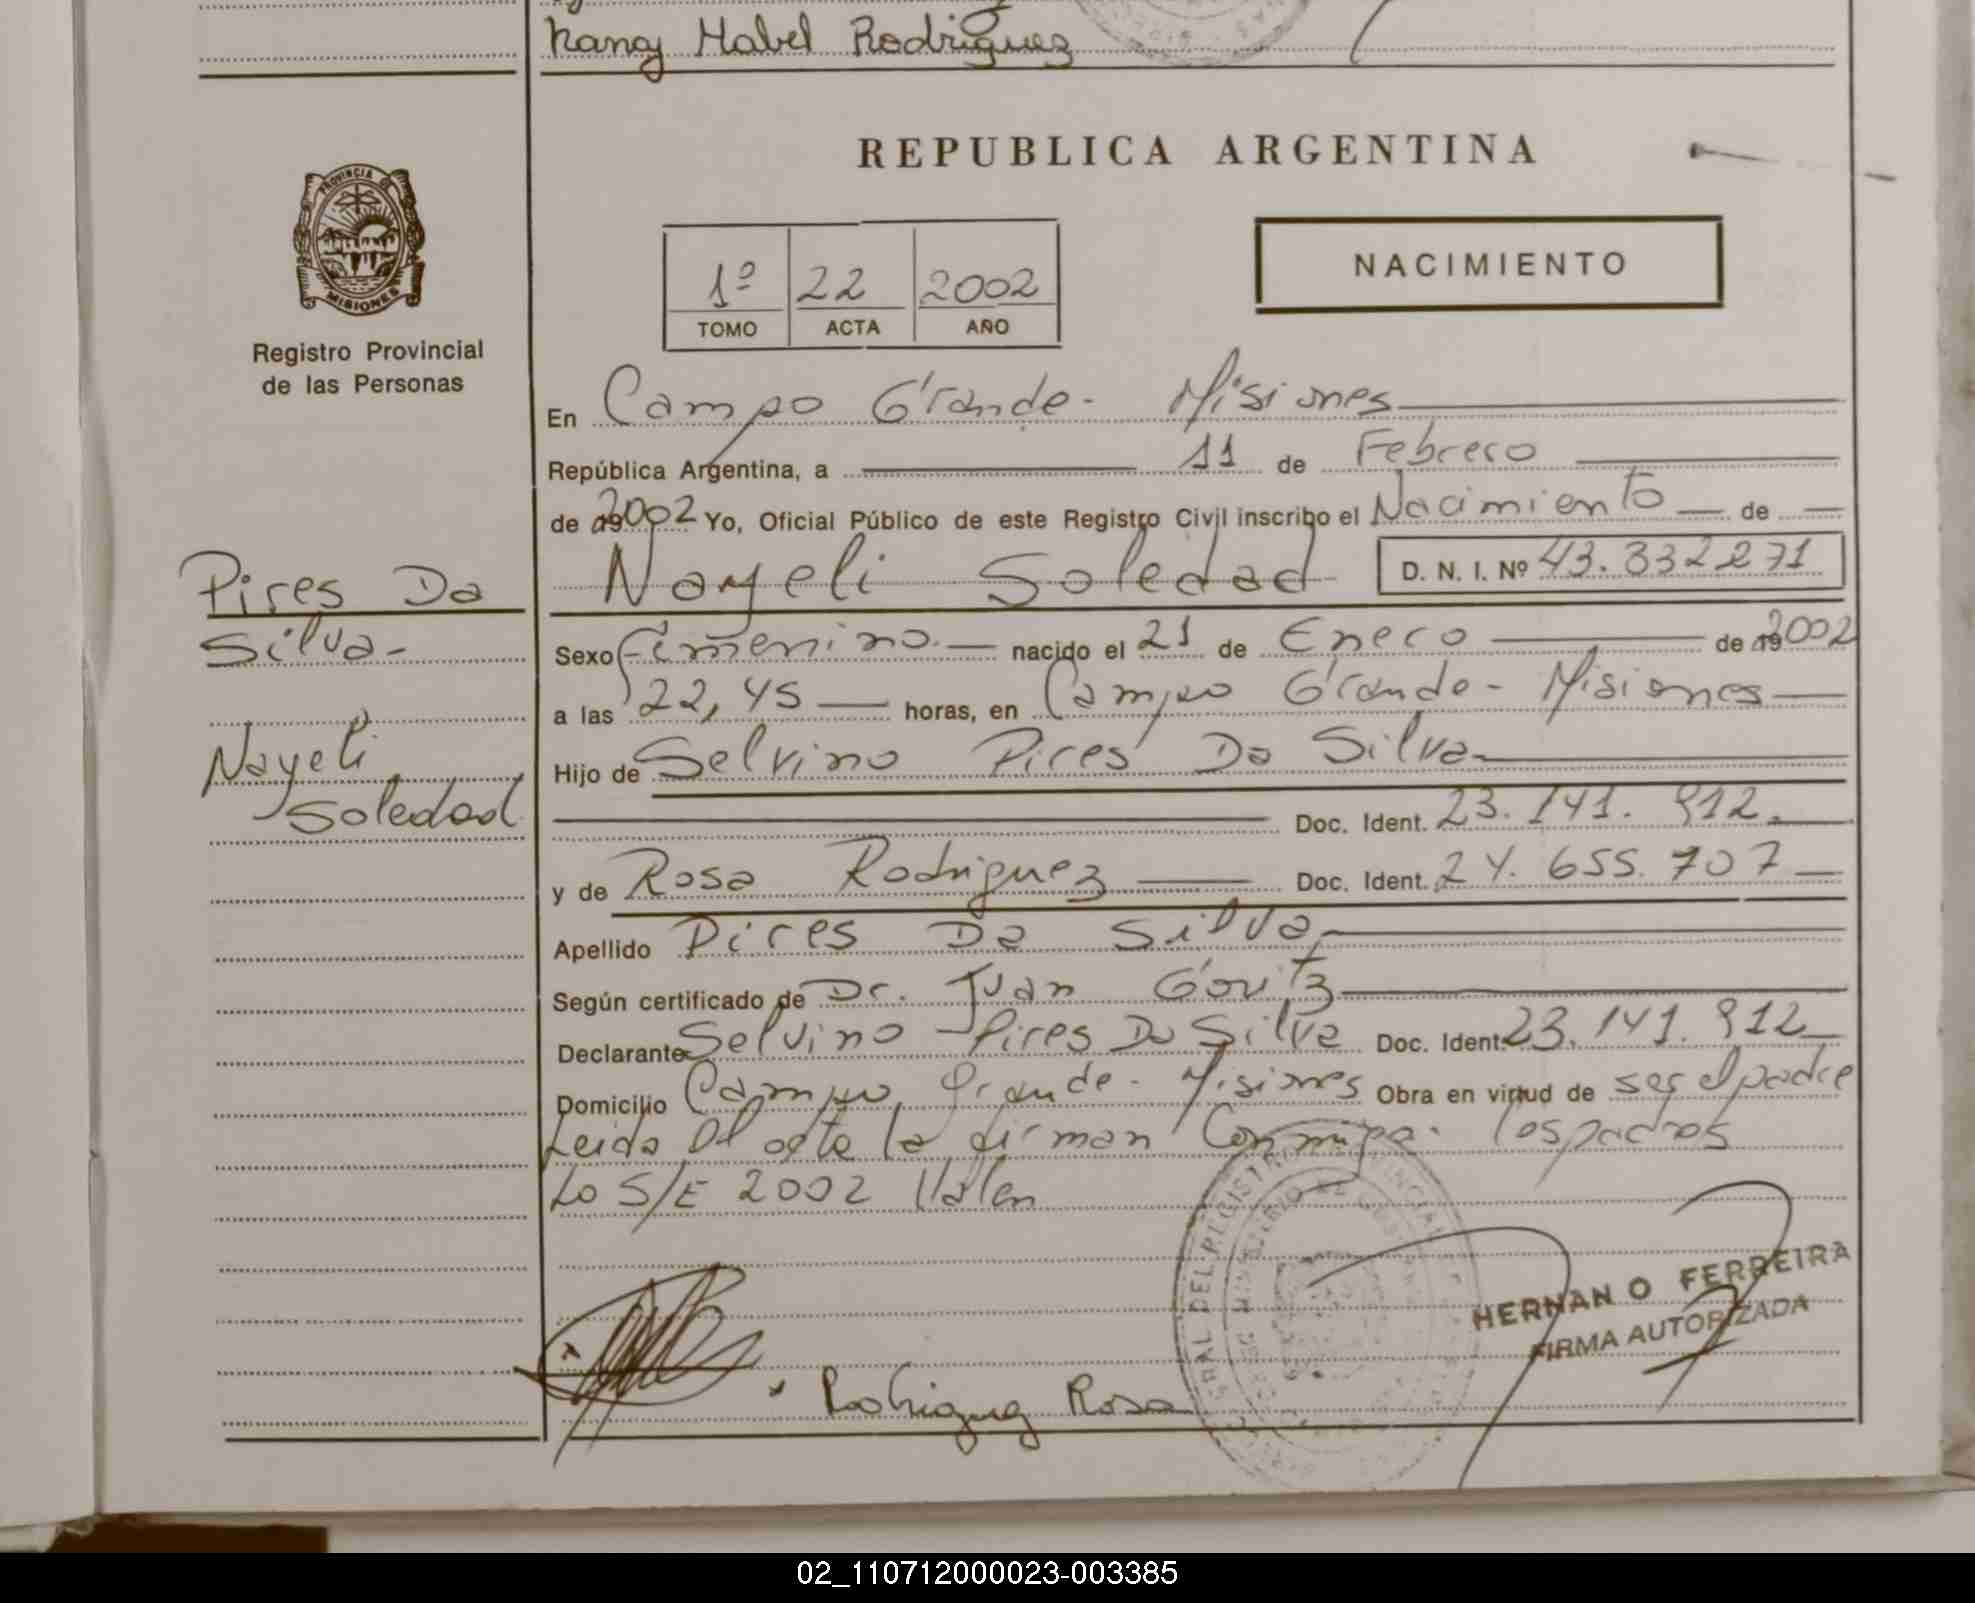 Nancy Mabel Rodriguez
REPUBLICA ARGENTINA
PROVINCIA DE
MISIONES
Registro Provincial
de las Personas
NACIMIENTO
1º 22 2002
TOMO ACTA AÑO
En Campo Grande - Misiones
República Argentina, a 11 de Febrero
de 2002 Yo, Oficial Público de este Registro Civil inscribo el Nacimiento de
Nayeli Soledad D. N. I. Nº 43.832271
Pires Da
Silva-
Nayeli
Soledad
Sexo Femenino. nacido el 21 de Enero de 2002
a las 22,45 horas, en Campo Grande - Misiones
Hijo de Selvino Pires Da Silva
Doc. Ident. 23.141.912.
y de Rosa Rodriguez Doc. Ident. 24.655.707
Apellido Pires Da Silva,
Según certificado de Dr. Juan
Declarante Selvino Pires Da Silva Doc. Ident. 23.141.912
Domicilio Campo Grande - Misiones Obra en virtud de ser el padre
Leida el acta la firman los padres
Lo S/E 2002 Valen
HERNAN O FERREIRA
FIRMA AUTORIZADA
Rodriguez Rosa
02_110712000023-003385